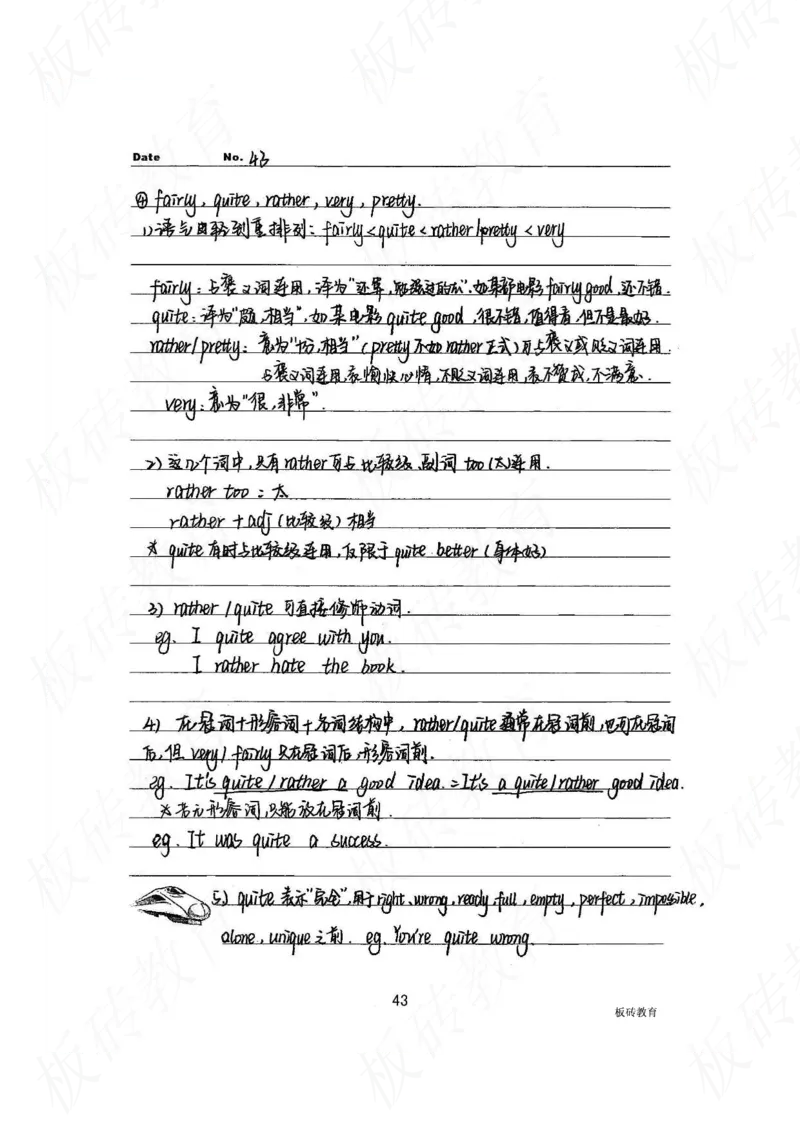 Date No. 43
④ fairly, quite, rather, very, pretty.
1) 语气由轻到重排列: fairly < quite < rather/pretty < very
fairly: 与褒义词连用, 译为"还算, 勉强过的去". 如某部电影fairly good, 还不错.
quite: 译为"颇, 相当", 如某电影 quite good, 很不错, 值得看, 但不是最好.
rather/pretty: 意为"十分, 相当" (pretty不如rather正式) 可与褒义或贬义词连用.
与褒义词连用, 表愉快心情, 不贬义词连用, 表不赞成, 不满意.
very: 意为"很, 非常".
2) 这几个词中, 只有rather可与比较级、副词 too (太)连用.
rather too : 太
rather + adj (比较级) 相当
* quite 有时与比较级连用, 仅限于 quite better (身体好)
3) rather / quite 可直接修饰动词.
eg. I quite agree with you.
I rather hate the book.
4) 在冠词+形容词+名词结构中, rather/quite通常在冠词前, 也可在冠词
后, 但 very/ fairly 只在冠词后, 形容词前.
eg. It's quite / rather a good idea. = It's a quite/rather good idea.
* 若无形容词, 只能放在冠词前.
eg. It was quite a success.
5) quite 表示"完全", 用于right, wrong, ready, full, empty, perfect, impossible,
alone, unique 之前. eg. You're quite wrong.
43
板砖教育